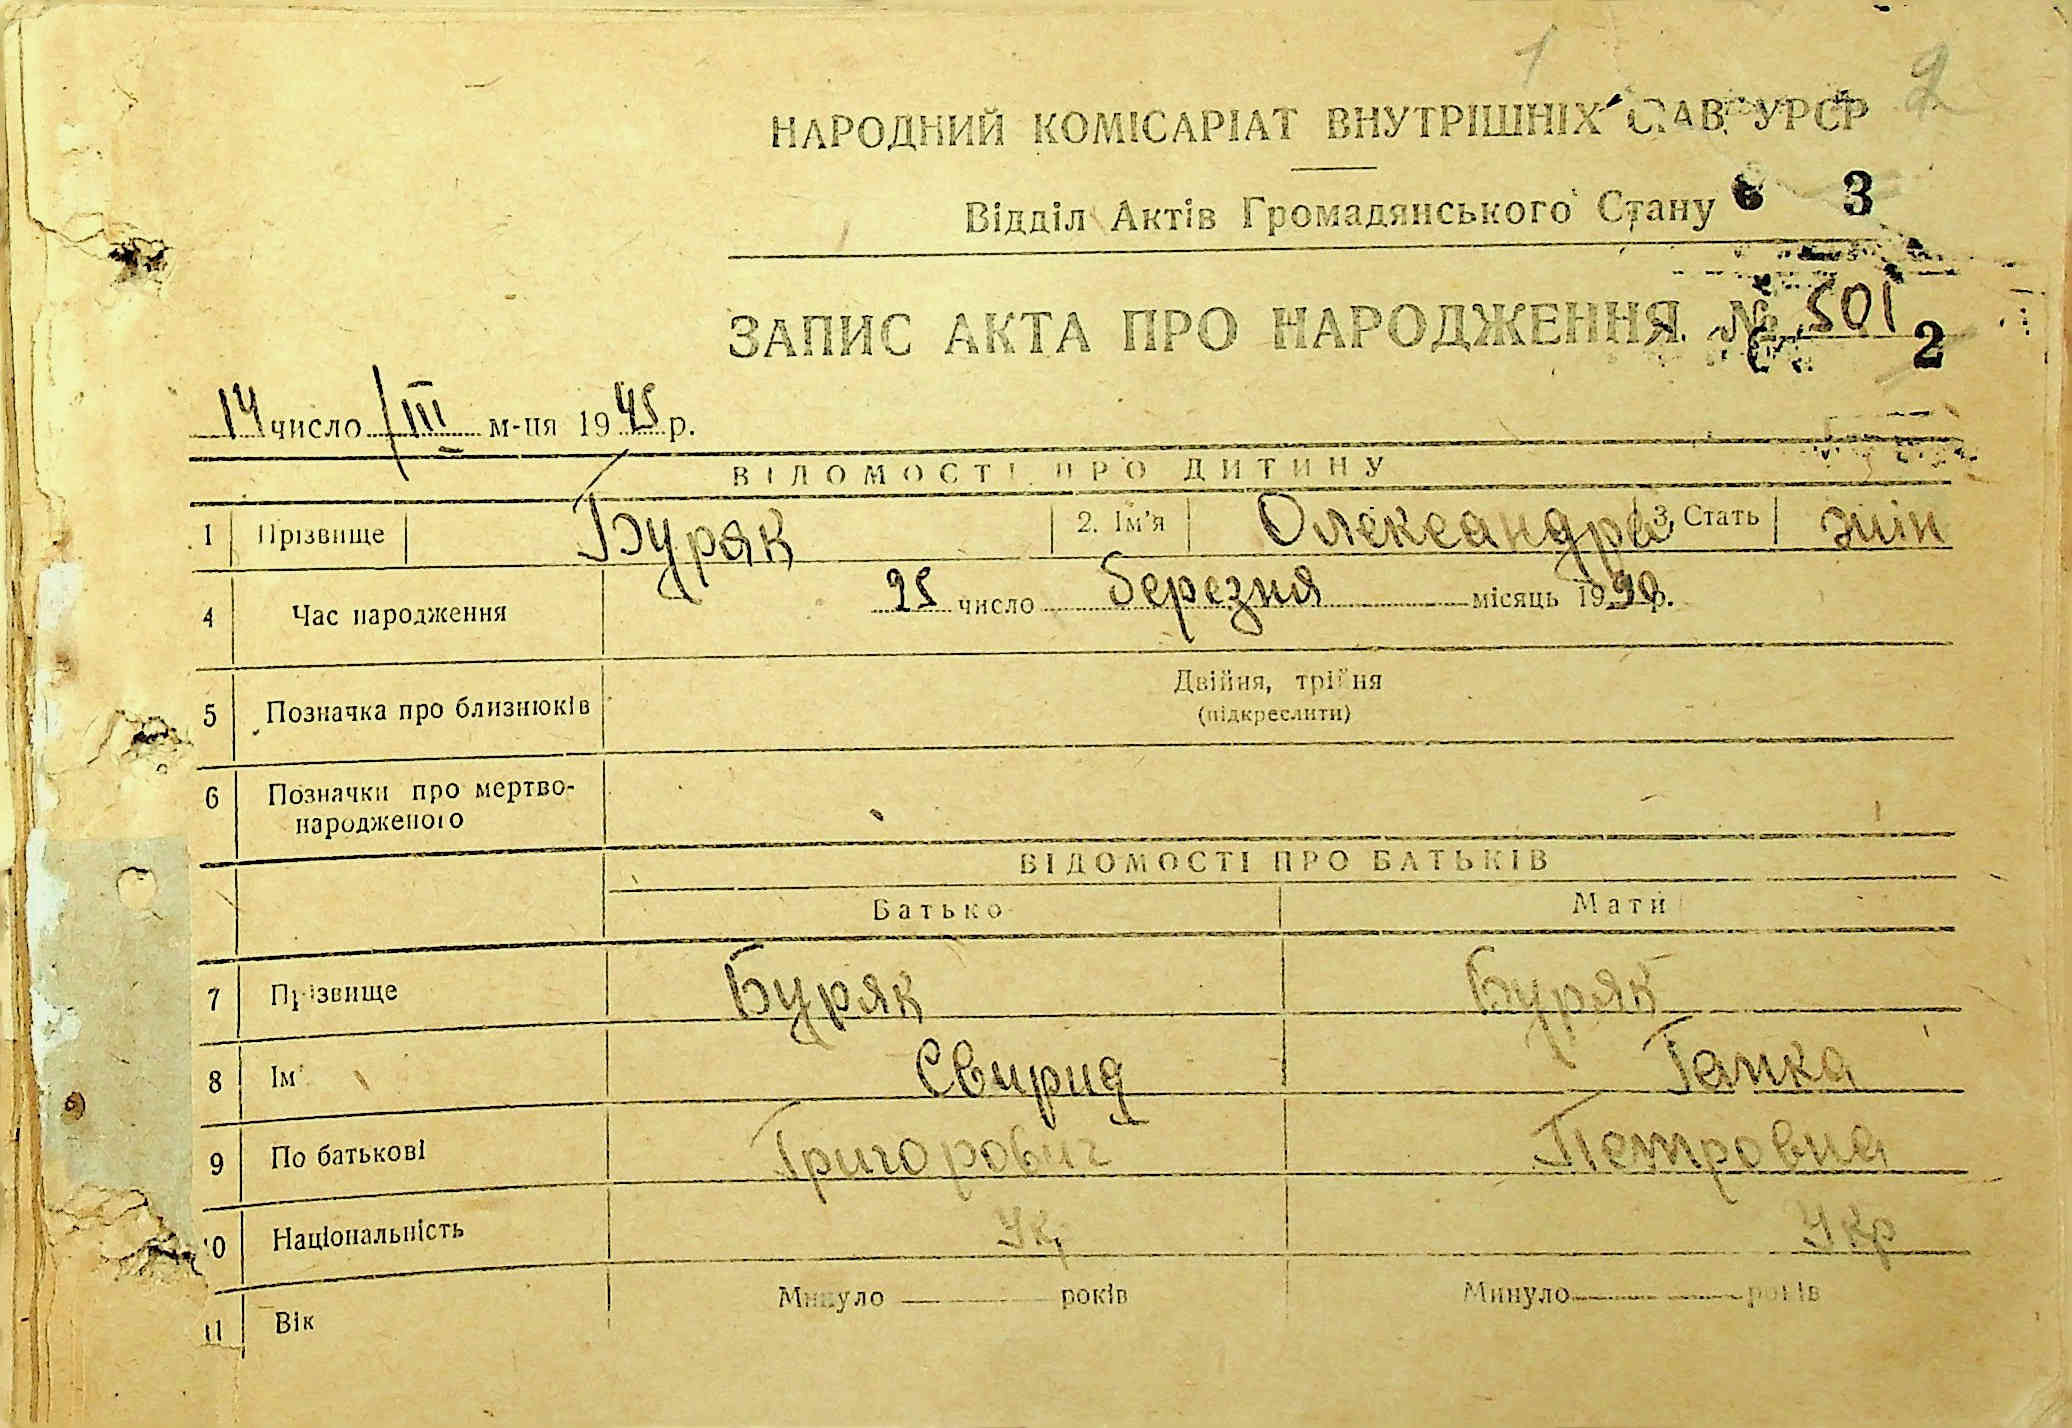 1 2
НАРОДНИЙ КОМІСАРІАТ ВНУТРІШНІХ СПРАВ УРСР
Відділ Актів Громадянського Стану 3
ЗАПИС АКТА ПРО НАРОДЖЕННЯ № 501
2
14 число III м-ця 1945 р.
ВІДОМОСТІ ПРО ДИТИНУ
1 Прізвище Буряк 2. Ім'я Олександра 3. Стать жін
4 Час народження 25 число березня місяць 19 р.
5 Позначка про близнюків Двійня, трійня
(підкреслити)
6 Позначки про мертво-
народженого
ВІДОМОСТІ ПРО БАТЬКІВ
Батько Мати
7 Прізвище Буряк Буряк
8 Ім' Свирид Гапка
9 По батькові Григорович Петровна
10 Національність Укр Укр
11 Вік Минуло років Минуло років